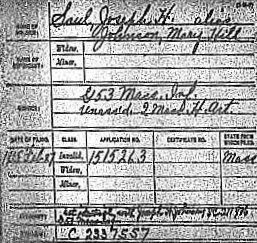 Saul, Joseph H. alias
Johnson, Mary Hill
NAME OF SOLDIER:
NAME OF DEPENDENT:
Widow,
Minor,
SERVICE:
G 53 Mass. Inf.
Unassd. 2 Mass. H. Art.
DATE OF FILING.
CLASS.
APPLICATION NO.
CERTIFICATE NO.
STATE FROM WHICH FILED.
Invalid,
1515263
Mass
Widow,
Minor,
C 2337557